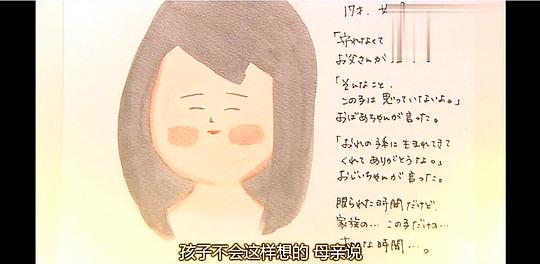 17才. 女
「守れなくて
お父さんが
「そんなこと、
この子は思っていないよ。」
おばあちゃんが言った。
「おれの孫に生まれてきて
くれてありがとうな。」
おじいちゃんが言った。
限られた時間だけど、
家族の… この子だけの…
な時間…。
孩子不会这样想的 母亲说